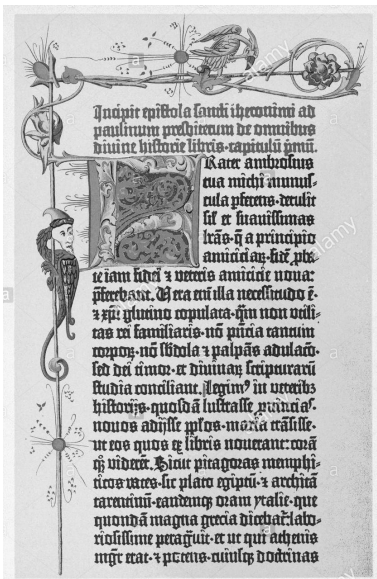 Incipit epistola sancti iheronimi ad
paulinum presbiterum de omnibus
divine historie libris·capitulū p̄mū.
Frater ambrosius
tua michi munus-
cula p̲ferens·detulit
sił et suavissimas
lr̄as·q̄ a principio
amiciciaꝝ·fidē p̲ba-
te iam fidei ⁊ veteris amicicie noua:
p̲ferebant. Vera em̄ illa necessitudo ē·
⁊ xp̄i glutino copulata·qm̄ non vtili-
tas rei familiaris·nō p̄ncia tantum
corpoꝝ·nō sb̄dola ⁊ palpās adulacō·
sed dei timor·et divinaꝝ scripturarū
studia conciliant. Legimꝰ in veteribꝫ
historijs·quosdā lustrasse p̲uīcias·
novos adijsse p̲p̲los·maria trāsisse·
ut eos quos ex libris noverant: corā
qꝫ viderēt. Sicut pitagoras memphi-
ticos vates·sic plato egiptū·⁊ architā
tarentinū·eandemqꝫ oram ytalie·que
quondā magna grecia dicebat̄: labo-
riosissime peragravit·et ut qui athenis
mgr̄ erat·⁊ potens·cuiusqꝫ doctrinas
alamy
alamy